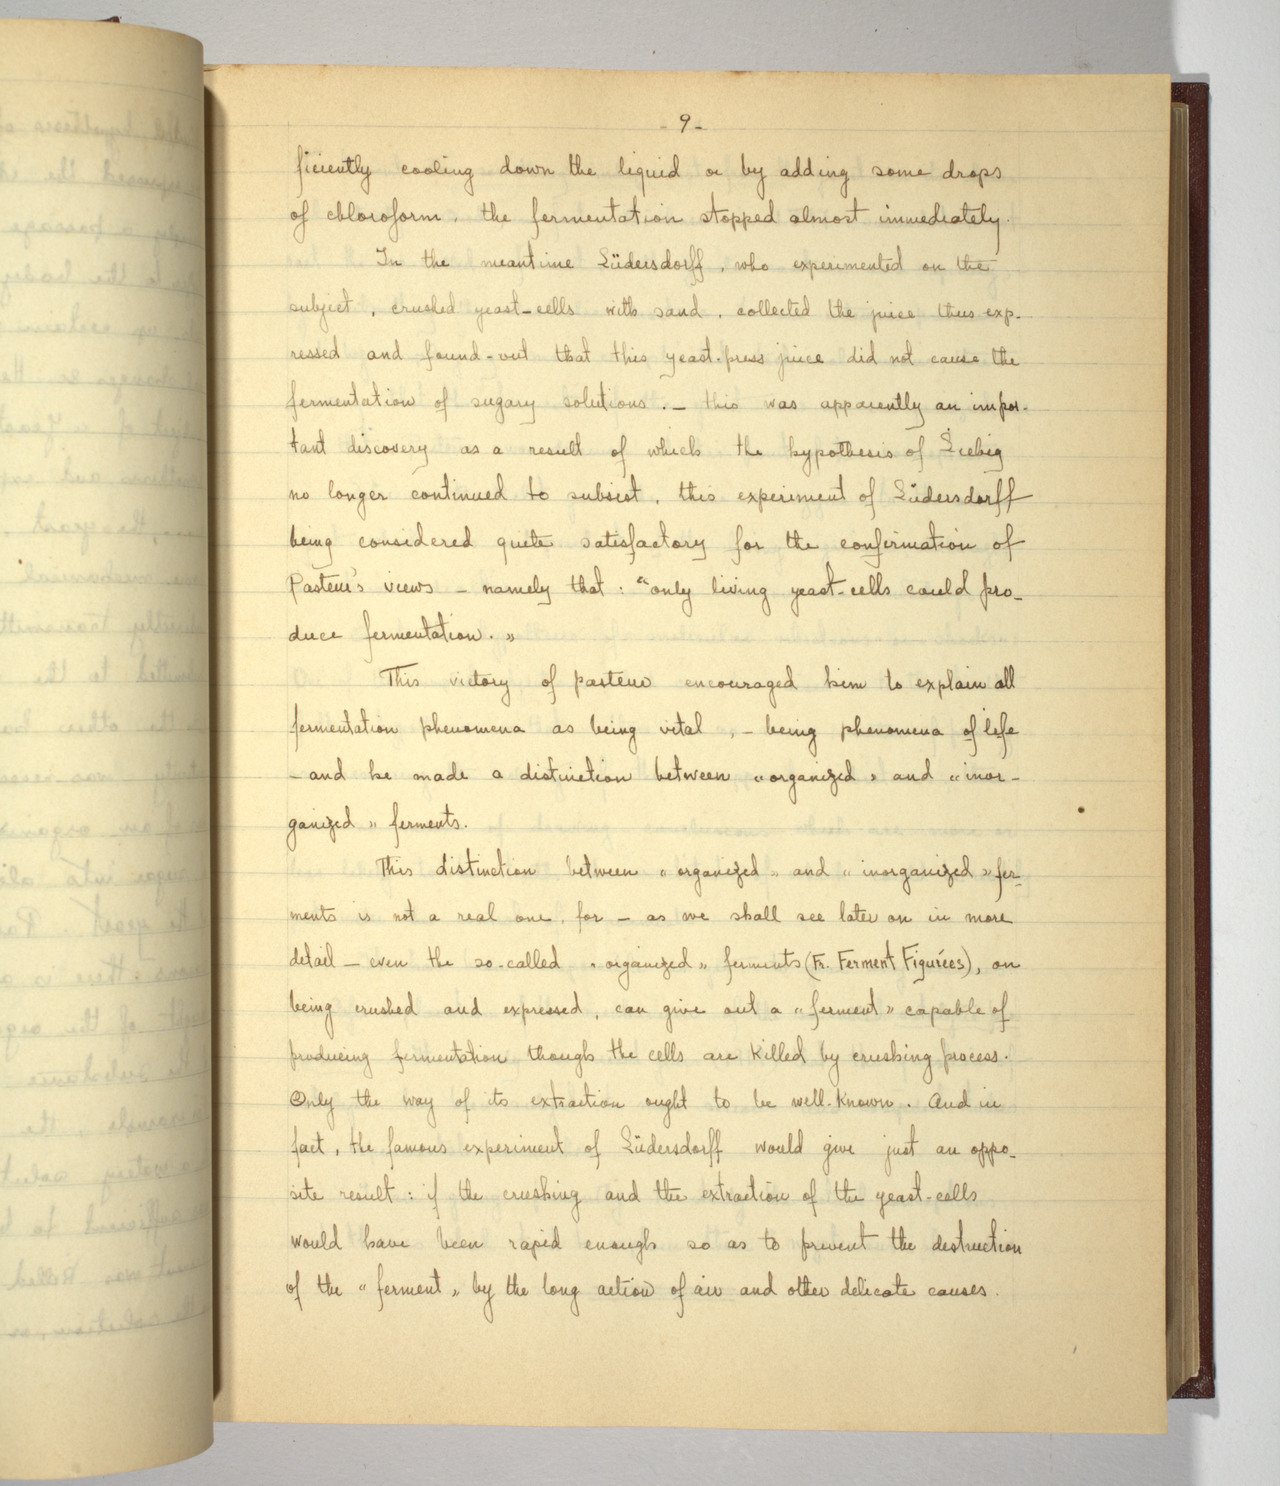 - 9 -
ficiently cooling down the liquid or by adding some drops
of chloroform, the fermentation stopped almost immediately.
In the meantime Lüdersdorff, who experimented on the
subject, crushed yeast-cells with sand, collected the juice thus exp-
ressed and found-out that this yeast-press juice did not cause the
fermentation of sugary solutions. — this was apparently an impor-
tant discovery as a result of which the hypothesis of Liebig
no longer continued to subsist, this experiment of Lüdersdorff
being considered quite satisfactory for the confirmation of
Pasteur's views — namely that: "only living yeast-cells could pro-
duce fermentation."
This victory of pasteur encouraged him to explain all
fermentation phenomena as being vital, - being phenomena of life
- and he made a distinction between "organized" and "inor-
ganized" ferments.
This distinction between "organized" and "inorganized" fer-
ments is not a real one, for — as we shall see later on in more
detail — even the so-called "organized" ferments (Fr. Ferment Figurées), on
being crushed and expressed, can give out a "ferment" capable of
producing fermentation though the cells are killed by crushing process.
Only the way of its extraction ought to be well-known. And in
fact, the famous experiment of Lüdersdorff would give just an oppo-
site result: if the crushing and the extraction of the yeast-cells
would have been rapid enough so as to prevent the destruction
of the "ferment" by the long action of air and other delicate causes.